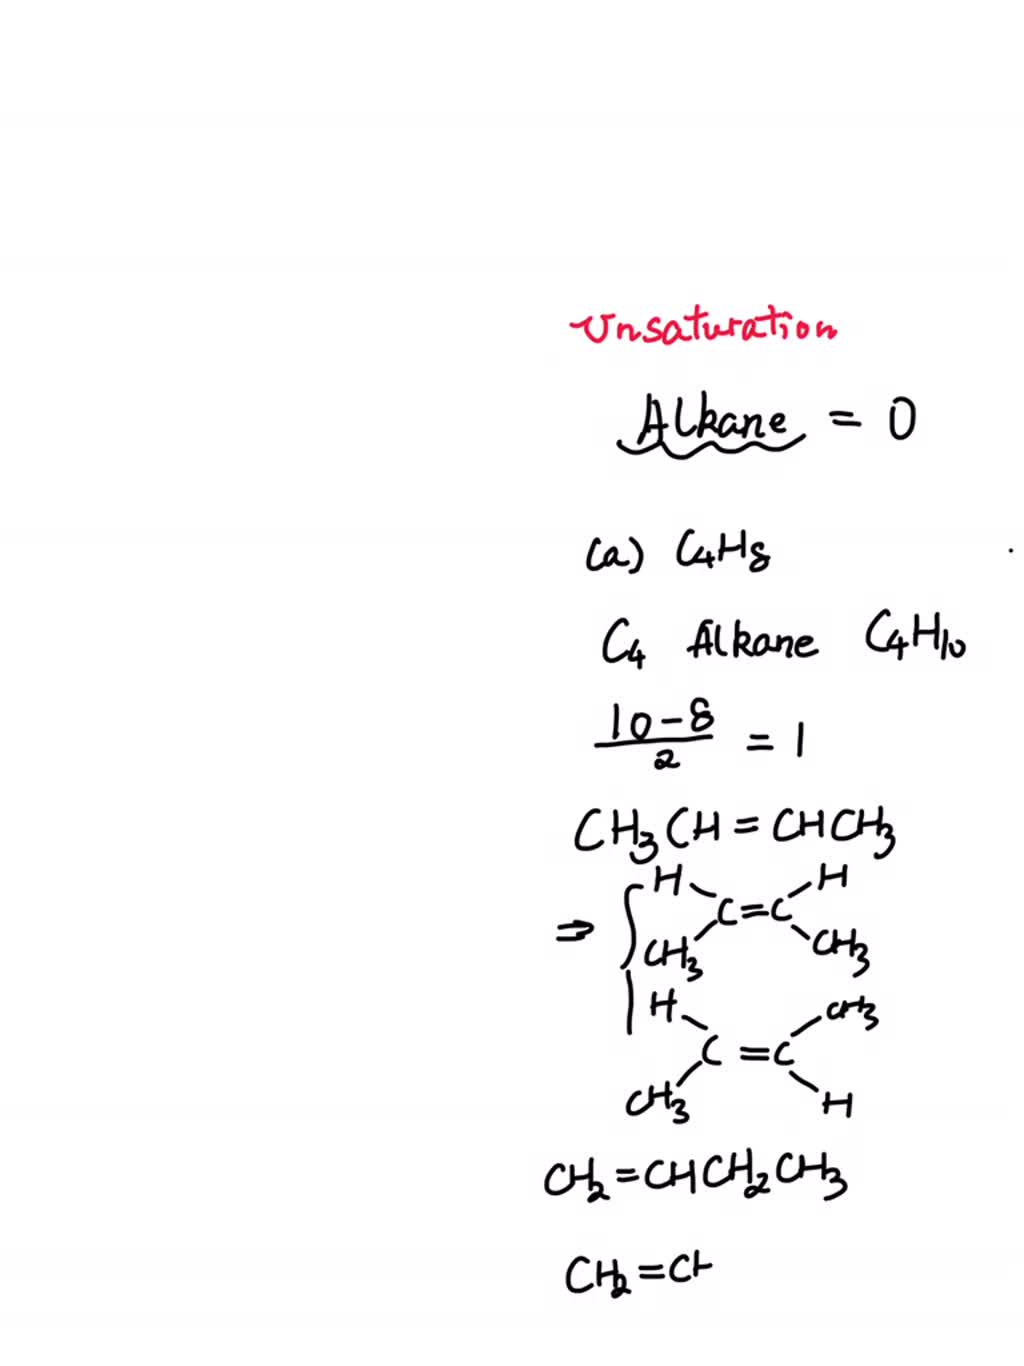 Unsaturation
Alkane = 0
(a) C4H8
C4 Alkane C4H10
10-8
2
= 1
CH3CH=CHCH3
H H
⇒ C=C
CH3 CH3
H CH3
C=C
CH3 H
CH2=CHCH2CH3
CH2=CH